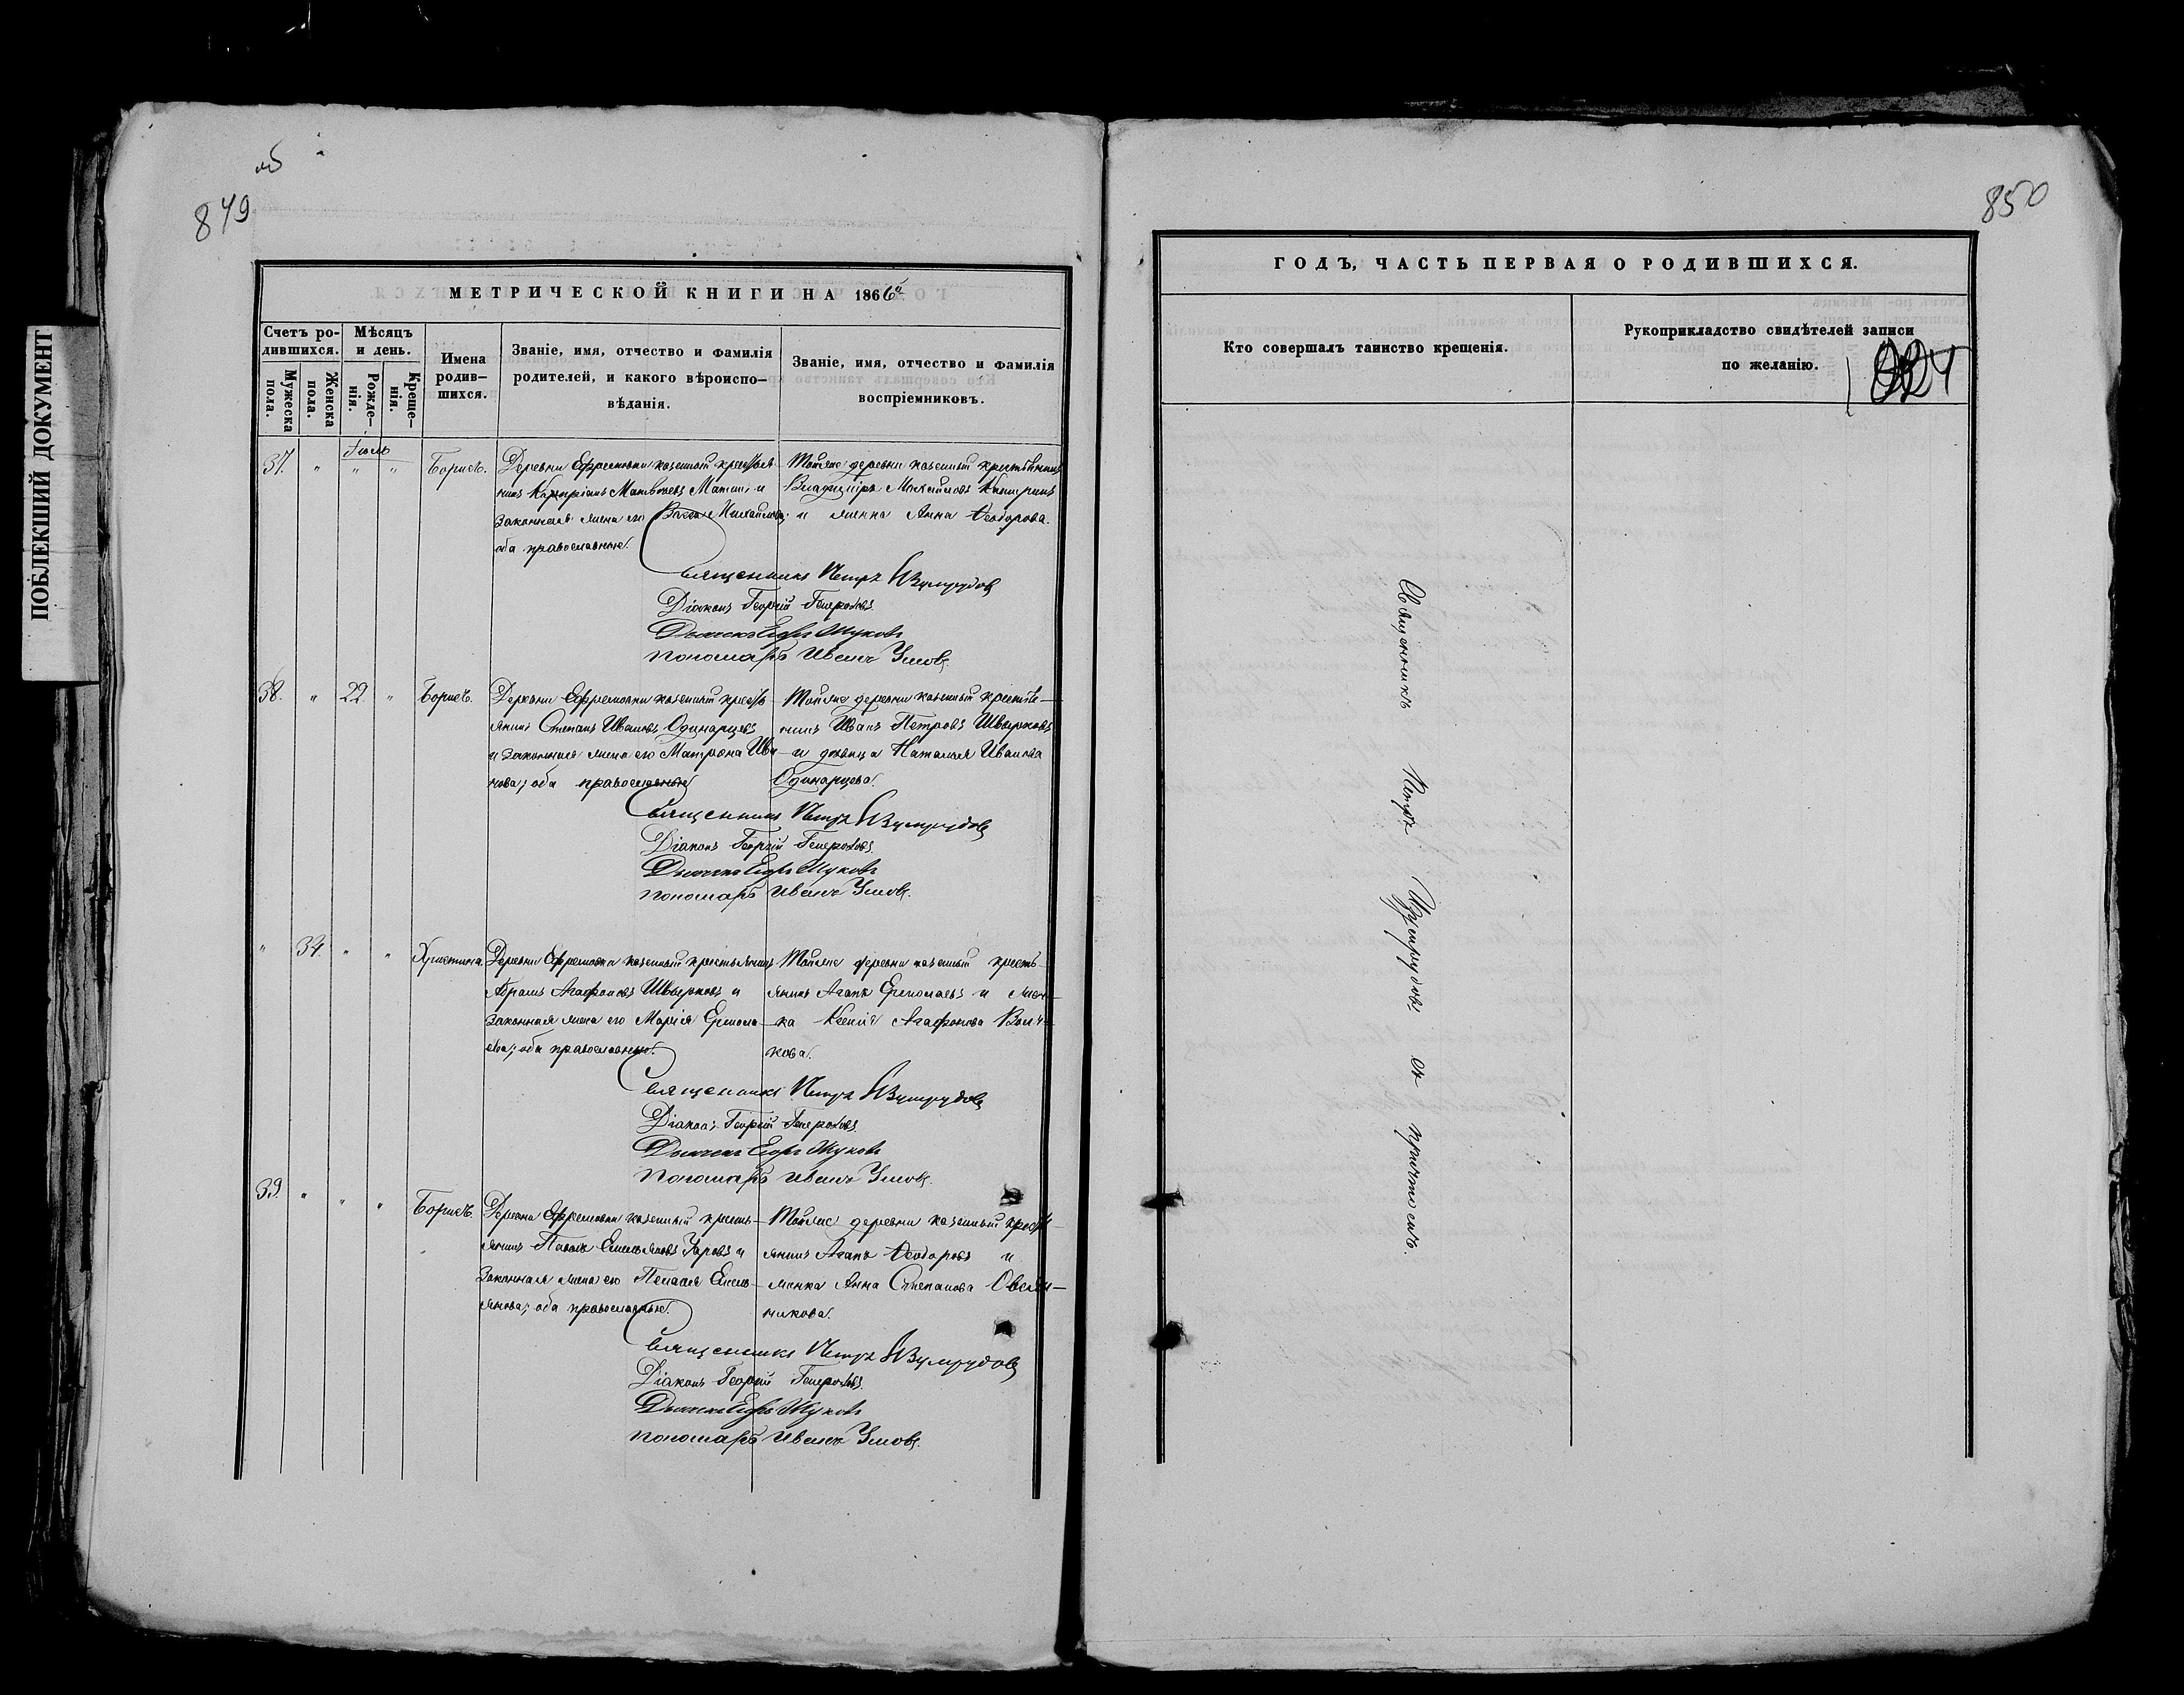 ПОБЛЕКШИЙ ДОКУМЕНТ
об
849
850
МЕТРИЧЕСКОЙ КНИГИ НА 1866й
Счетъ родившихся.
Мужеска пола.
Женска пола.
Мѣсяцъ и день.
Рожденія.
Крещенія.
Имена родившихся.
Званіе, имя, отчество и фамилія
родителей, и какого вѣроиспо-
вѣданія.
Званіе, имя, отчество и фамилія
воспріемниковъ.
Іюль
37. " " " Борисъ.
Деревни Ефремовки казенный крестья-
нинъ Матвѣевъ и
законная жена его Михайлова;
оба православные.
Тойже деревни казенный крестьянинъ
Владиміръ Михайловъ
и женка Анна Ѳеодорова.
Священникъ Петръ Изумрудовъ
Діаконъ Георгій
Дьячекъ Егоръ Жуковъ
Пономарь Иванъ Умовъ.
38. " 22 " Борисъ.
Деревни Ефремовки казенный кресть-
янинъ Степанъ Ивановъ Одинарцевъ
и законная жена его Матрона Ива-
нова; оба православные.
Тойже деревни казенный крестья-
нинъ Иванъ Петровъ Швырковъ
и дѣвица Наталья Иванова
Одинарцева.
Священникъ Петръ Изумрудовъ
Діаконъ Георгій
Дьячекъ Егоръ Жуковъ
Пономарь Иванъ Умовъ.
" 34. " " Христина.
Деревни Ефремовки казенный крестьянинъ
Абрамъ Агафоновъ Швырковъ и
законная жена его Марія Ермола-
ева; оба православные.
Тойже деревни казенный кресть-
янинъ Агапъ Ермолаевъ и жен-
ка Ксенія Агафонова Волч-
кова.
Священникъ Петръ Изумрудовъ
Діаконъ Георгій
Дьячекъ Егоръ Жуковъ
Пономарь Иванъ Умовъ.
39. " " " Борисъ.
Деревни Ефремовки казенный кресть-
янинъ Павелъ Емельяновъ и
законная жена его Пелагея Емель-
янова; оба православные.
Тойже деревни казенный кресть-
янинъ Агапъ Ѳеодоровъ и
женка Анна Степанова Овсян-
никова.
Священникъ Петръ Изумрудовъ
Діаконъ Георгій
Дьячекъ Егоръ Жуковъ
Пономарь Иванъ Умовъ.
ГОДЪ, ЧАСТЬ ПЕРВАЯ О РОДИВШИХСЯ.
Кто совершалъ таинство крещенія.
Рукоприкладство свидѣтелей записи
по желанію.
Священникъ Петръ Изумрудовъ съ причтомъ.